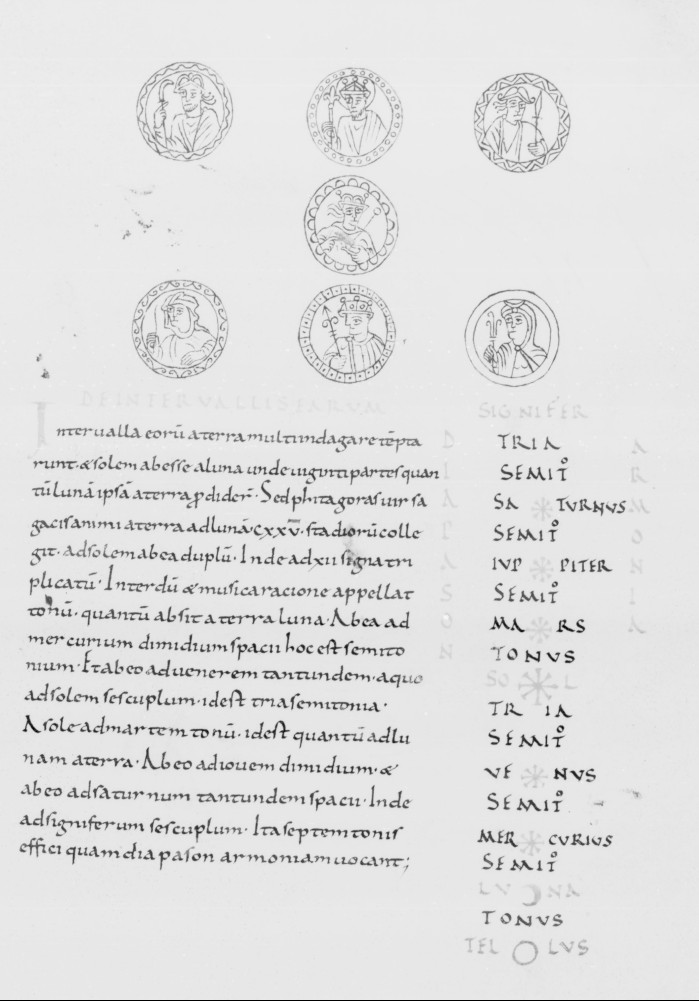 DE INTERVALLIS EARUM
Intervalla eorū a terra multi indagare tēpta
runt. & solem abesse a luna undeviginti partes quan
tū lunā ipsā a terra ꝓdider̄. Sed phitagoras vir sa
gacis animi a terra ad lunā. cxxv̄. stadiorū colle
git. ad solem ab ea duplū. Inde ad xii signa tri
plicatū. Interdū & musica racione appellat
tonū. quantū absit a terra luna. Ab ea ad
mercurium dimidium spacii hoc est semito
nium. Et ab eo ad uenerem tantundem. a quo
ad solem sescuplum. id est tria semitonia.
A sole ad martem tonū. id est quantū ad lu
nam a terra. Ab eo ad iouem dimidium. &
ab eo ad saturnum tantundem spacii. Inde
ad signiferum sescuplum. Ita septem tonis
effici quam diapason armoniam uocant;
DIAPASON
SIGNIFER
TRIA
SEMIT̊
SATURNUS
SEMIT̊
IUPPITER
SEMIT̊
MARS
TONUS
SOL
TRIA
SEMIT̊
VENUS
SEMIT̊
MERCURIUS
SEMIT̊
LUNA
TONUS
TELLUS
ARMONIA